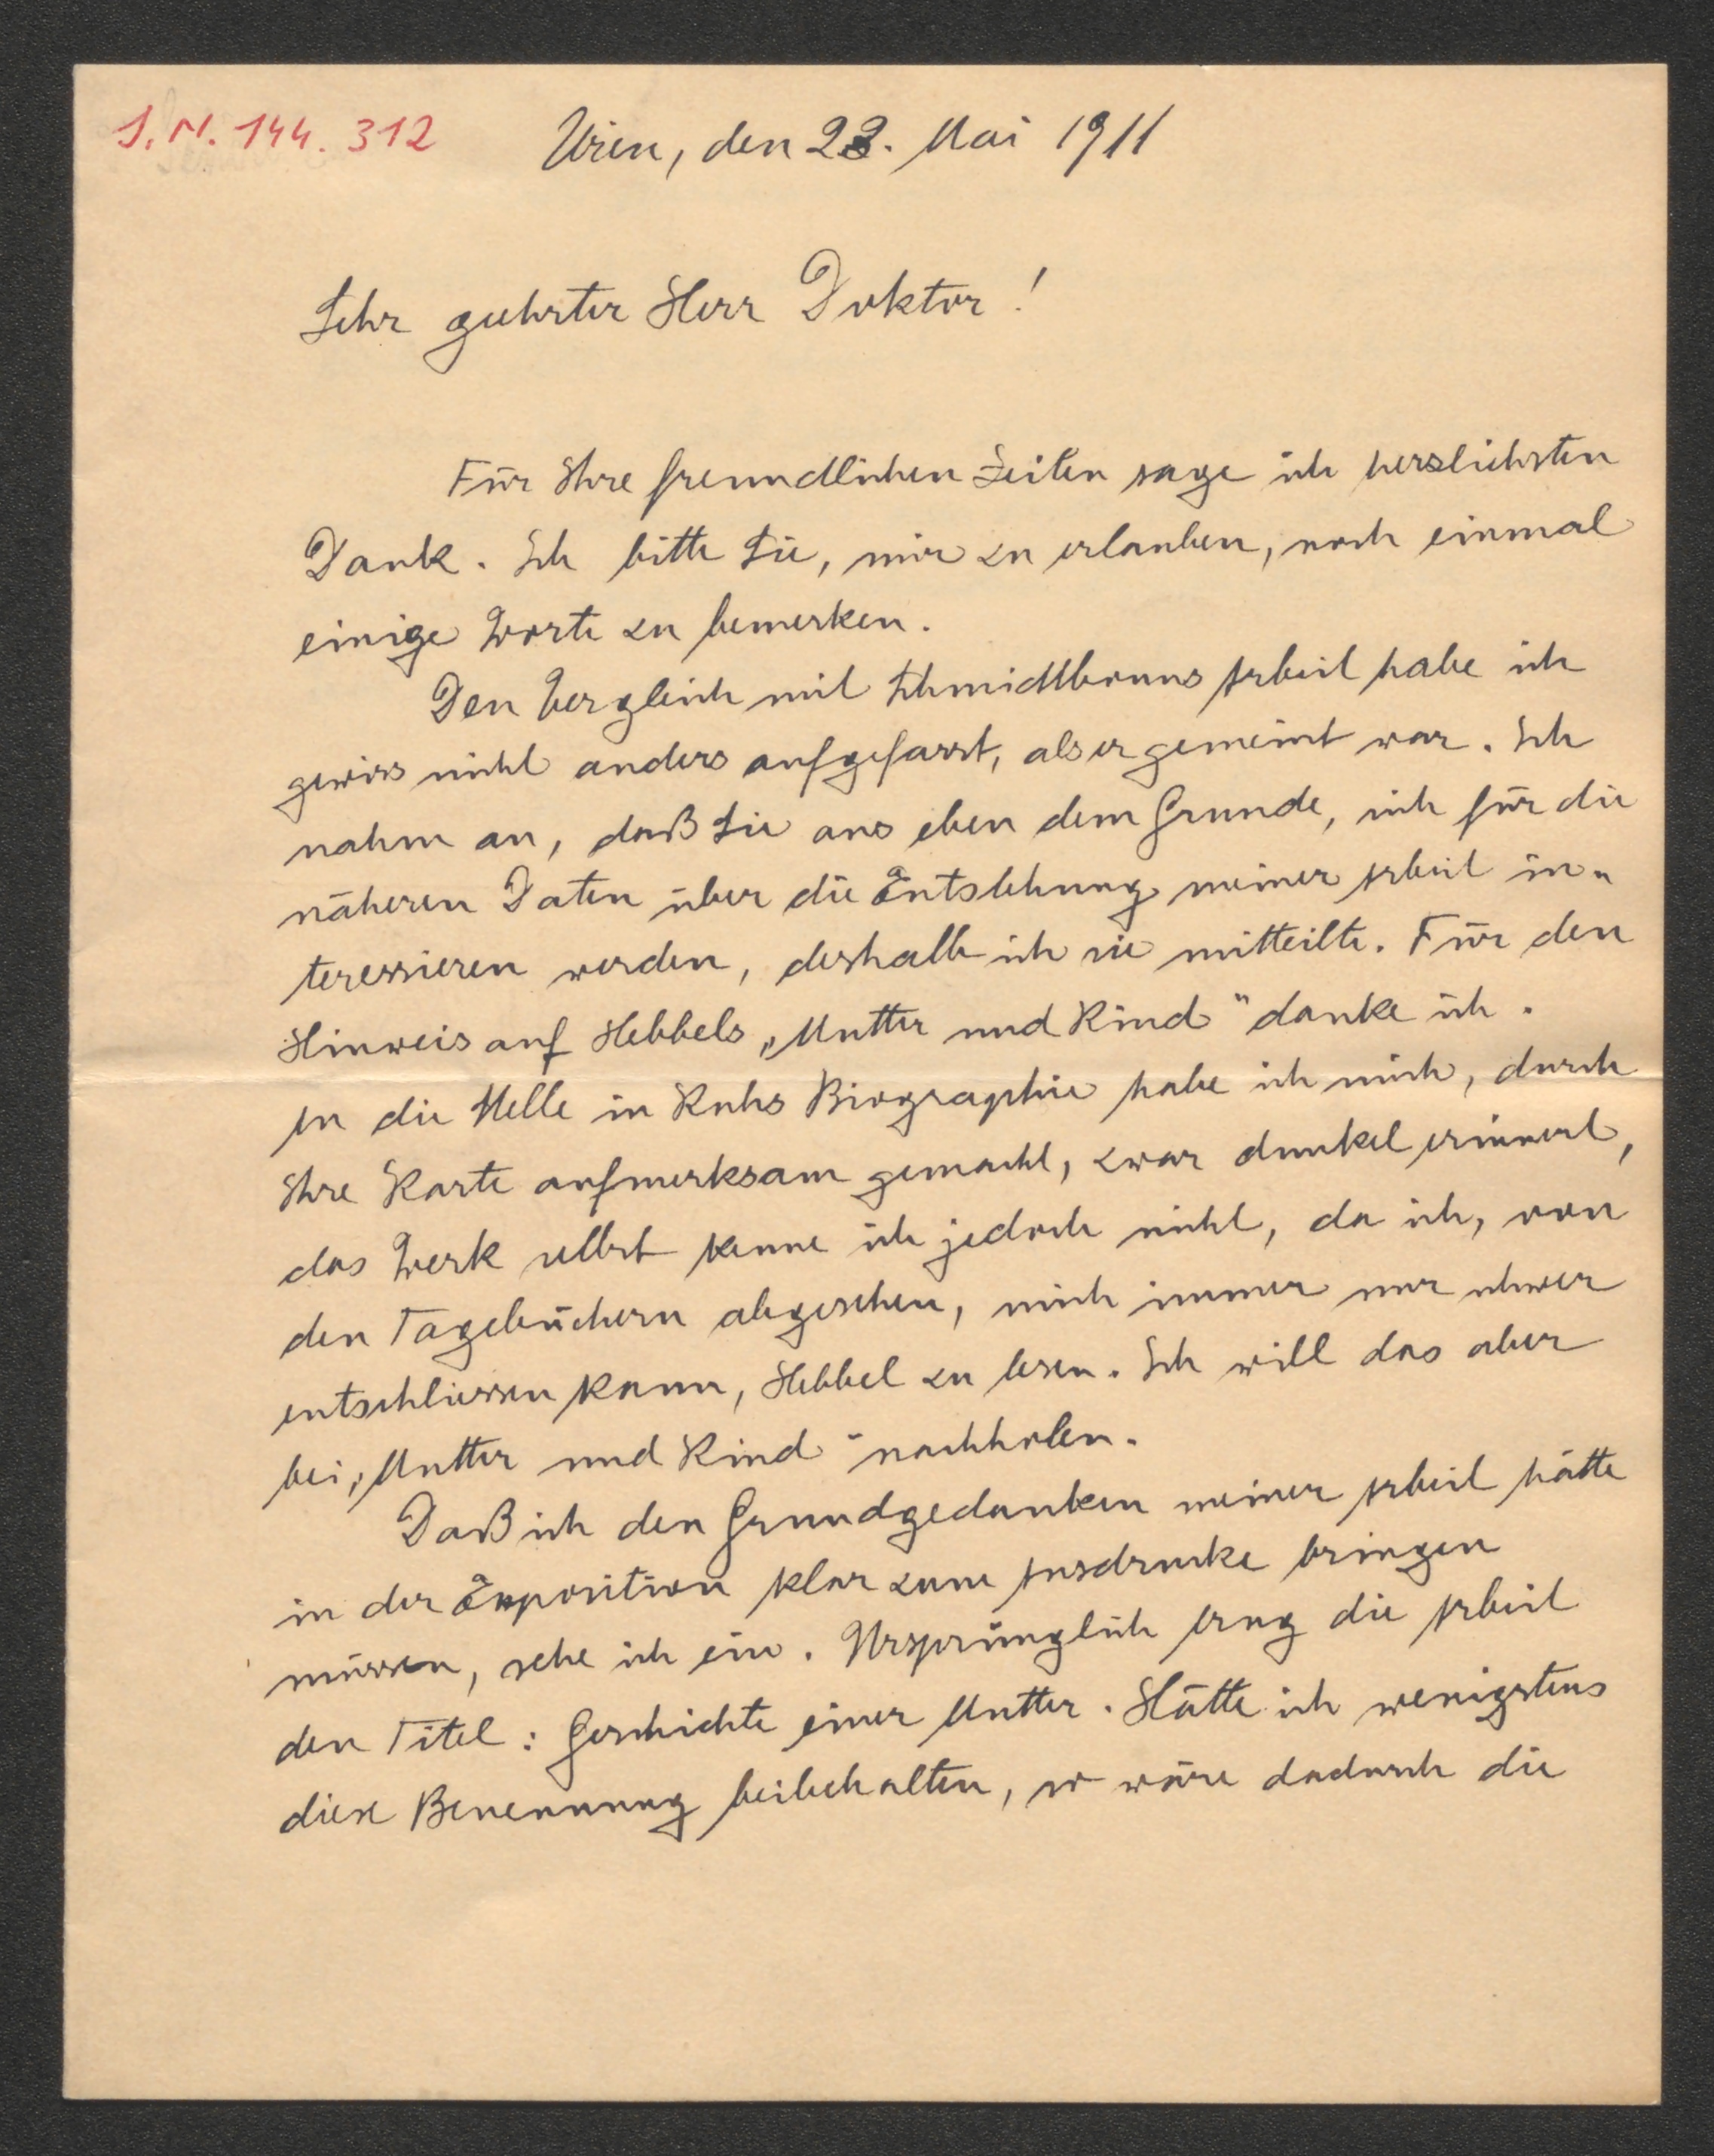 I. N. 144. 312
Wien, den 23. Mai 1911
Sehr geehrter Herr Doktor!
Für Ihre freundlichen Zeilen sage ich herzlichsten
Dank. Ich bitte Sie, mir zu erlauben, noch einmal
einige Worte zu bemerken.
Den Vergleich mit Schmidtbonns Arbeit habe ich
gewiss nicht anders aufgefasst, als er gemeint war. Ich
nahm an, daß Sie aus eben dem Grunde, sich für die
näheren Daten über die Entstehung meiner Arbeit in-
teressieren werden, deshalb ich sie mitteilte. Für den
Hinweis auf Hebbels „Mutter und Kind" danke ich.
An die Stelle in Kuhs Biographie habe ich mich, durch
Ihre Karte aufmerksam gemacht, zwar dunkel erinnert,
das Werk selbst kenne ich jedoch nicht, da ich, von
den Tagebüchern abgesehen, mich immer nur schwer
entschliessen kann, Hebbel zu lesen. Ich will das aber
bei „Mutter und Kind" nachholen.
Daß ich den Grundgedanken meiner Arbeit hätte
in der Exposition klar zum Ausdrucke bringen
müssen, sehe ich ein. Ursprünglich trug die Arbeit
den Titel: Geschichte einer Mutter. Hätte ich wenigstens
diese Benennung beibehalten, so wäre dadurch die